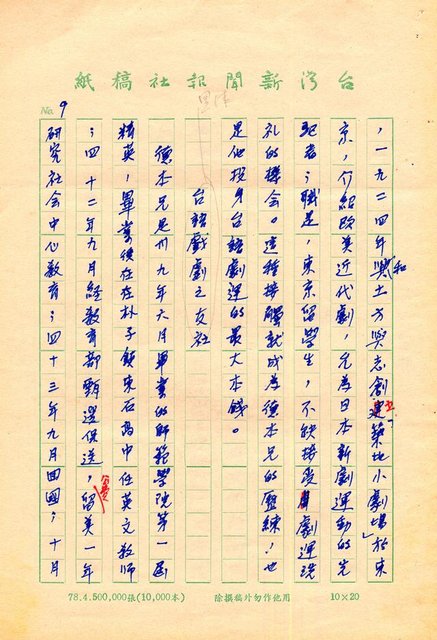 台灣新聞報社稿紙
No. 9
，一九二四年與土方與志創立「築地小劇場」於東
京，介紹歐美近代劇，允為日本新劇運動的先
驅者；職是，東京留學生，不缺接受劇運洗
礼的機會。這種接觸就成為德本兄的歷練！也
是他投身台語劇運的最大本錢。
台語戲劇之友社
德本兄是卅九年六月畢業的師範學院第一屆
精英！畢業後任在朴子鎮東石高中任英文教師
；四十二年九月經教育部甄選保送，公費留美一年
研究社会中心教育；四十三年九月回國；十月
78.4.500,000張(10,000本)
除撰稿外勿作他用
10×20